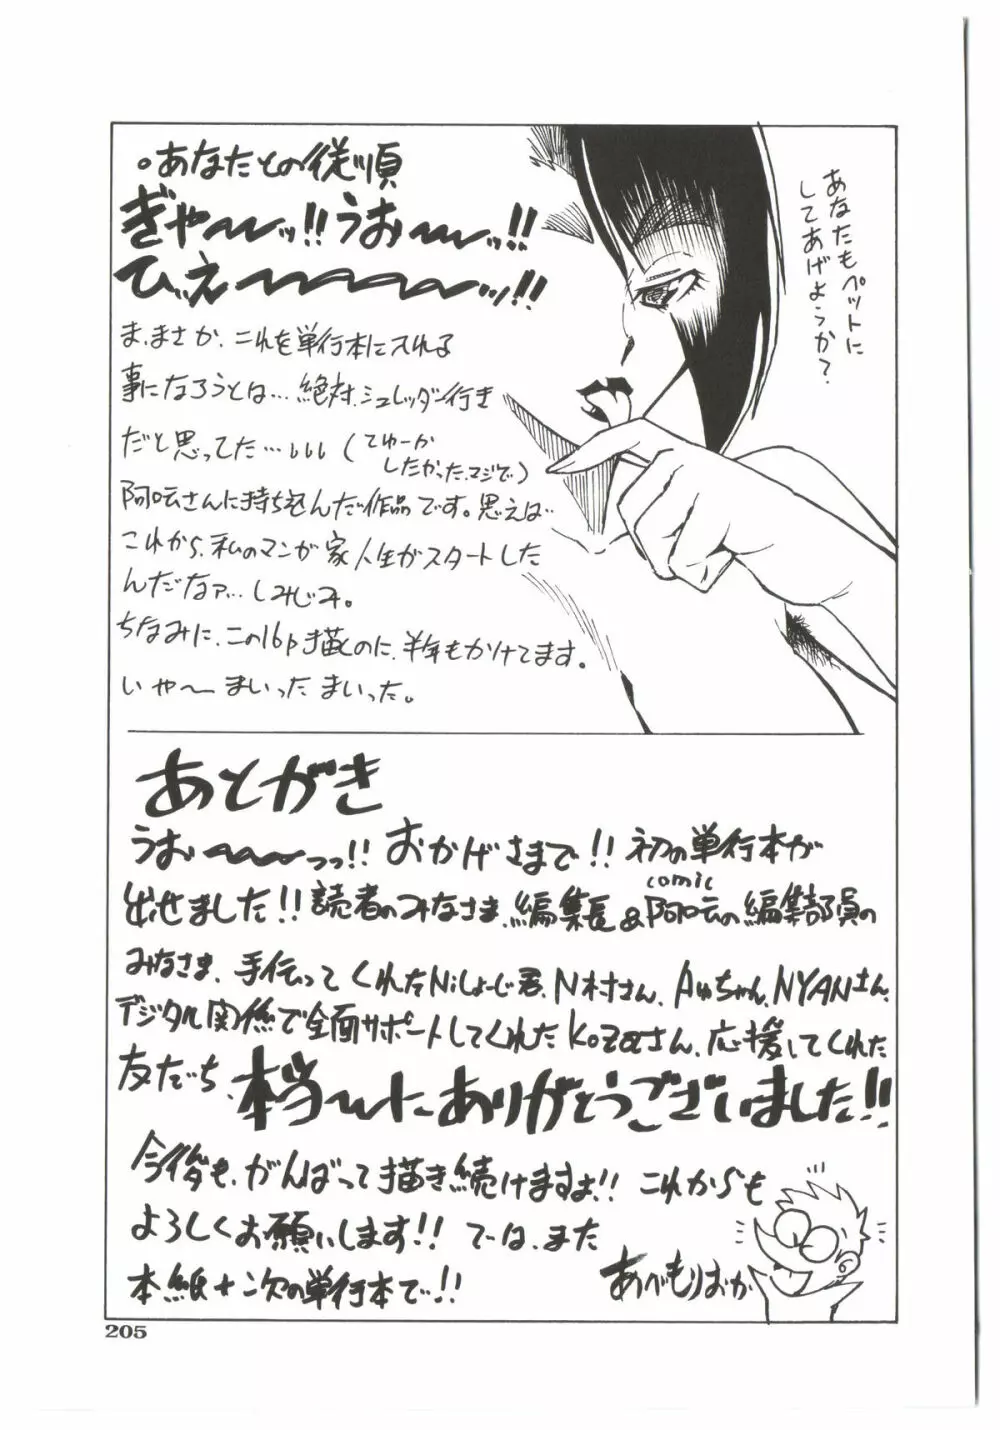 。あなたとの従順
ぎゃ〜〜ッ!!うお〜〜ッ!!
ひえ〜〜〜〜ッ!!
ま、まさか、これを単行本に入れる
事になろうとは…絶対、シュレッダー行き
だと思ってた…。。。(てゆーか
したかった、マジで)
阿吽さんに持ち込んだ作品です。思えば…
これから、私のマンガ家人生がスタートした
んだなァ…しみじみ。
ちなみに、この16p描くのに、半年もかけてます。
いや〜まいったまいった。
あなたもペットに
してあげようか?
あとがき
うお〜〜〜っっ!!おかげさまで!!初の単行本が
出せました!!読者のみなさま、編集長&comic阿吽の編集部員の
みなさま、手伝ってくれたNiしょーじ君、N村さん、Aゅちゃん、NYANさん、
デジタル関係で全面サポートしてくれたKozaさん、応援してくれた
友だち、本当〜〜にありがとうございました!!
今後も、がんばって描き続けますよ!!これからも
よろしくお願いします!!で・は、また
本紙+次の単行本で!!
あべもりおか
205